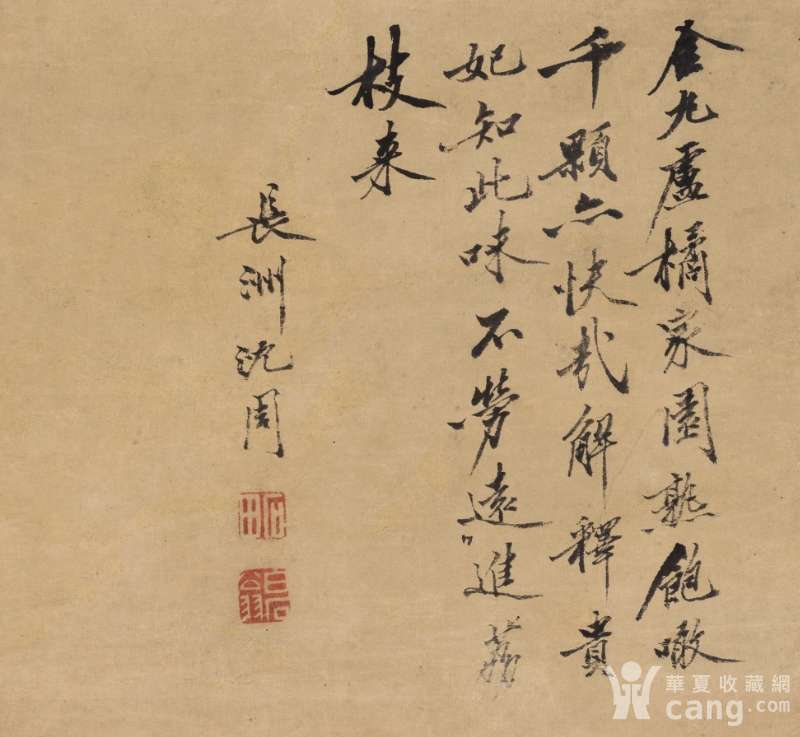 金丸盧橘家園熟飽噉
千顆亦快哉解釋貴
妃知此味不勞遠進荔
枝來
長洲沈周
華夏收藏網
cang.com